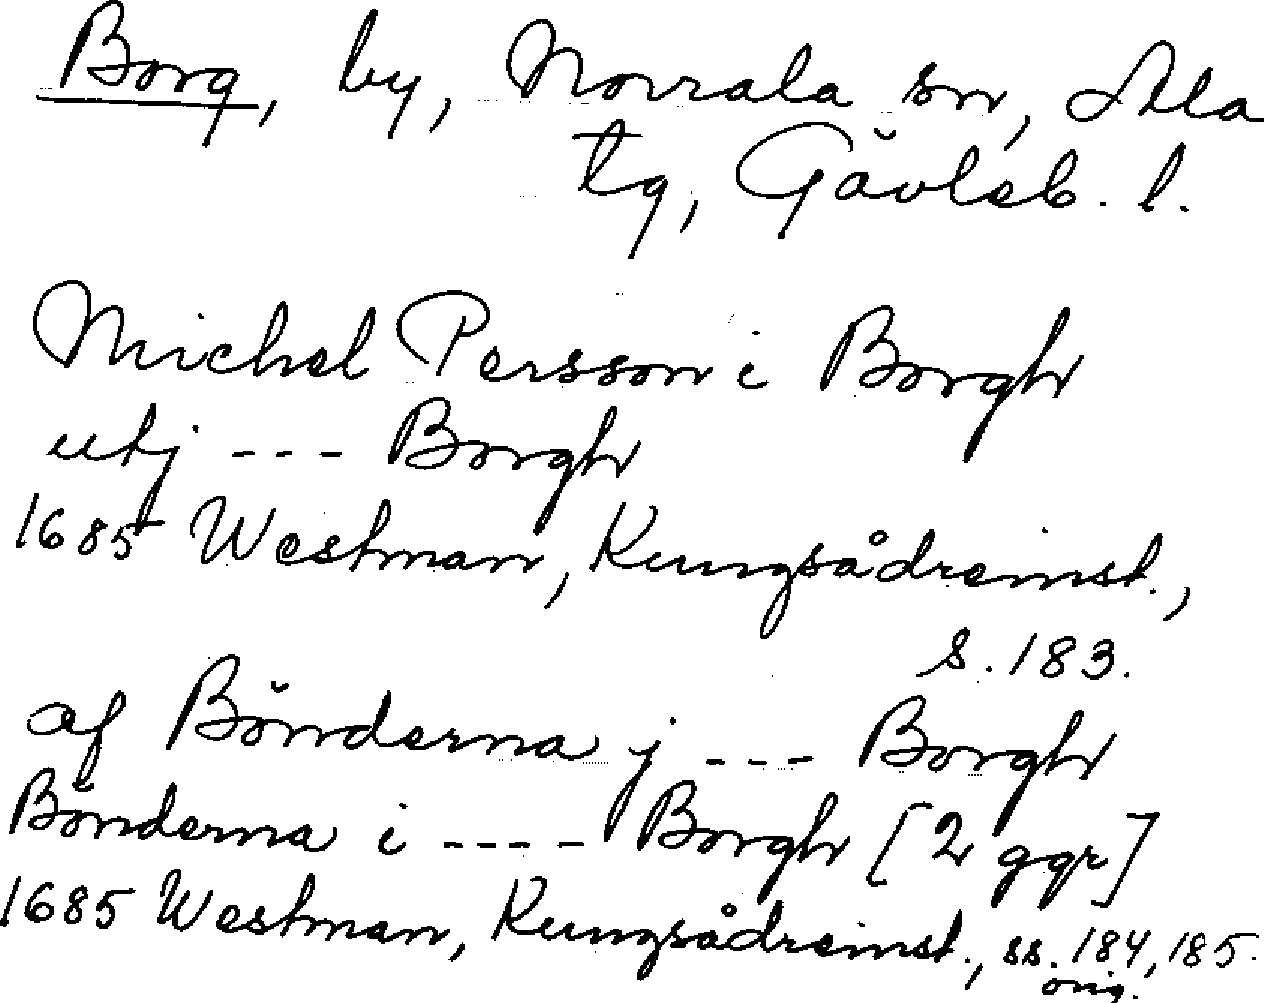 Borg, by, Norrala sn, Ala
tg, Gävleb. l.
Michel Persson i Borgh
utj --- Borgh
1685 Westman, Kungsådreinst.,
s. 183.
af Bönderna j --- Borgh
Bönderna i ---- Borgh [2 ggr]
1685 Westman, Kungsådreinst., ss. 184, 185.
orig.